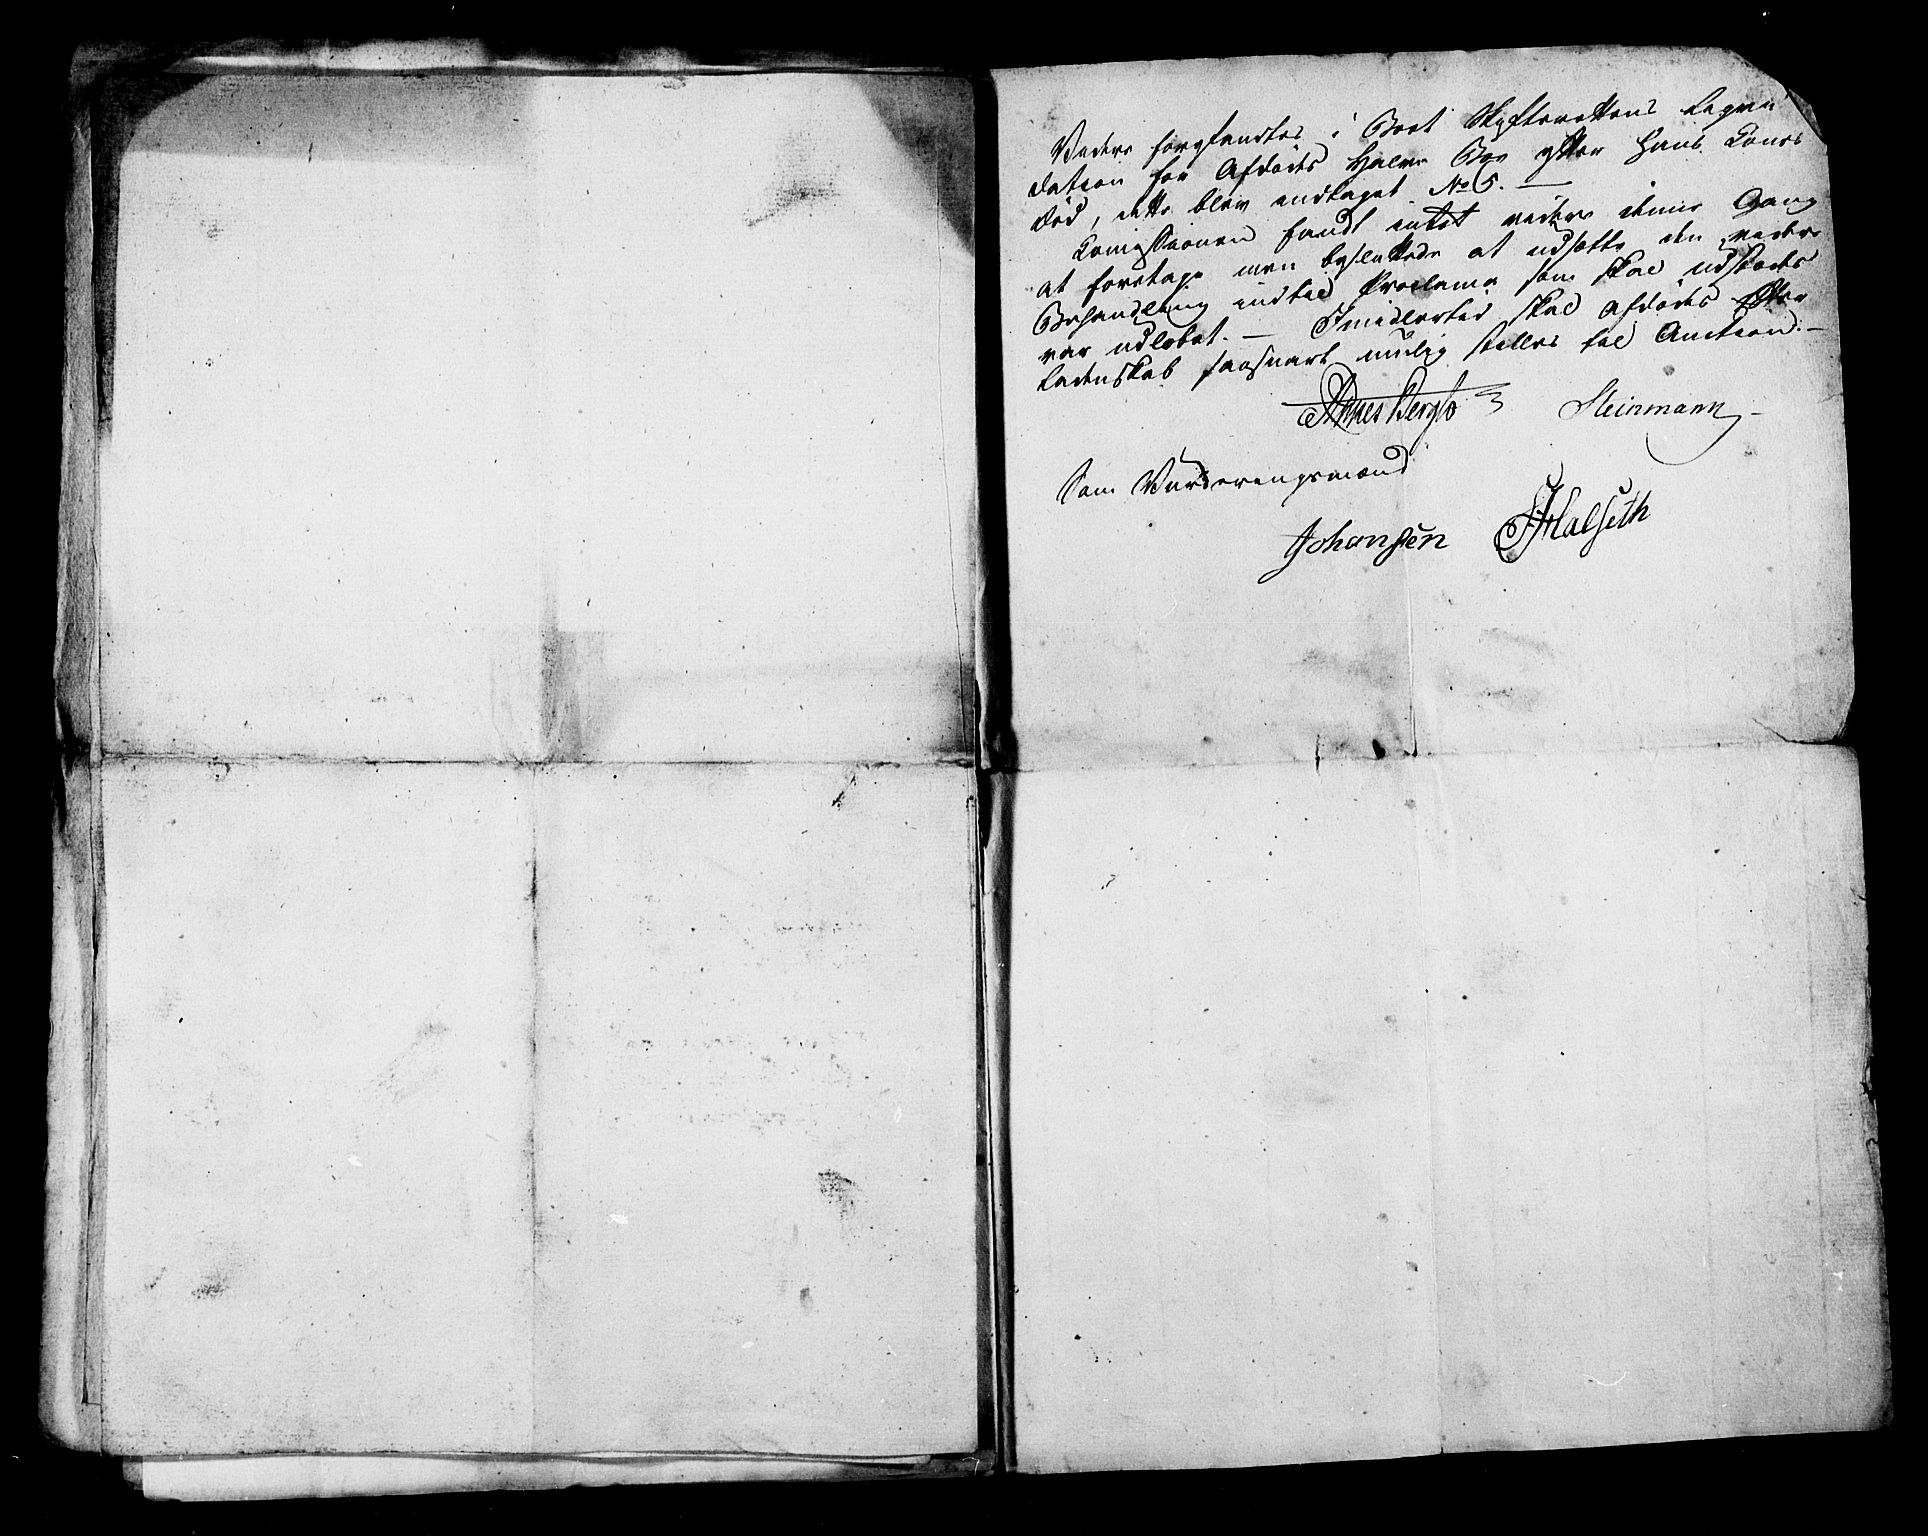 Videre forefandtes i Boet Skifterettens Liqvi
dation for Afdødes Halve Boe efter Hans Kones
Død, dette blev indtaget No 5. —
Comissionen fandt intet videre denne Gang
at foretage men besluttede at udsætte den videre
Behandling indtil Proclama som skal udstædes
var udløbet. — Imidlertid skal Afdødes Efter
ladenskab saasnart mulig stilles til Auction. —
Steinmann
Som Vurderingsmænd
Johansen Halseth